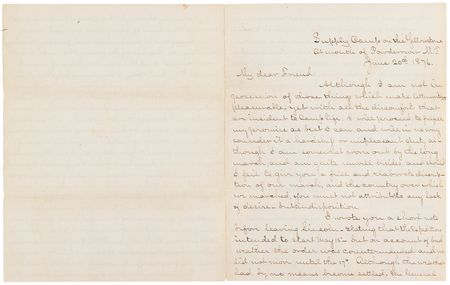 Supply Camp on the Yellowstone
At mouth of Powder river M.T.
June 20th 1876.
My dear Friend
Although I am not in
possession of those things which make letter writing
pleasurable, yet with all the discomfort that
are incident to Camp life, I will proceed to fulfil
my promise as best I can, and will in no way
consider it a hardship or unpleasant duty, al-
though I am somewhat worn out by the long
march and am quite unwell besides and should
I fail to give you a full and elaborate descrip-
tion of our march, and the country over which
we marched, you must not attribute to any lack
of desire - but indisposition.
I wrote you a short note
before leaving Lincoln - stating that the Expedition
intended to start May 15th - but on account of bad
weather the order was countermanded and we
did not move until the 17th. Although the weather
had by no means become settled, the General